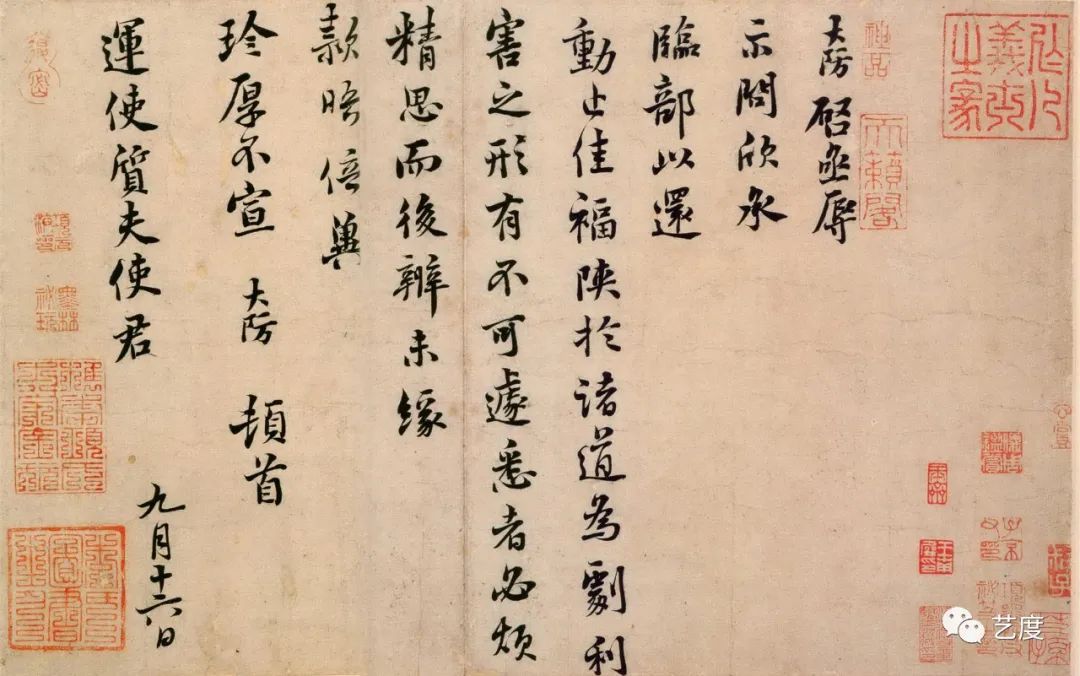 大防啓亟辱
示問欣承
臨部以還
動止佳福陝於諸道為劇利
害之形有不可遽悉者必煩
精思而後辦未緣
款晤倍興
珍厚不宣 大防 頓首
運使質夫使君
九月十六日
神品
天籟閣
艺度